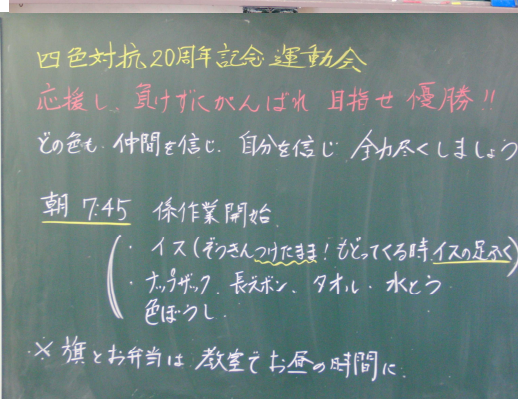 四色対抗20周年記念運動会
応援し、負けずにがんばれ 目指せ優勝!!
どの色も、仲間を信じ、自分を信じ 全力尽くしましょう
朝 7:45 係作業開始
・イス(ぞうきんつけたまま!もどってくる時イスの足ふく)
・ナップザック、長ズボン、タオル・水とう
色ぼうし
※旗とお弁当は教室でお昼の時間に